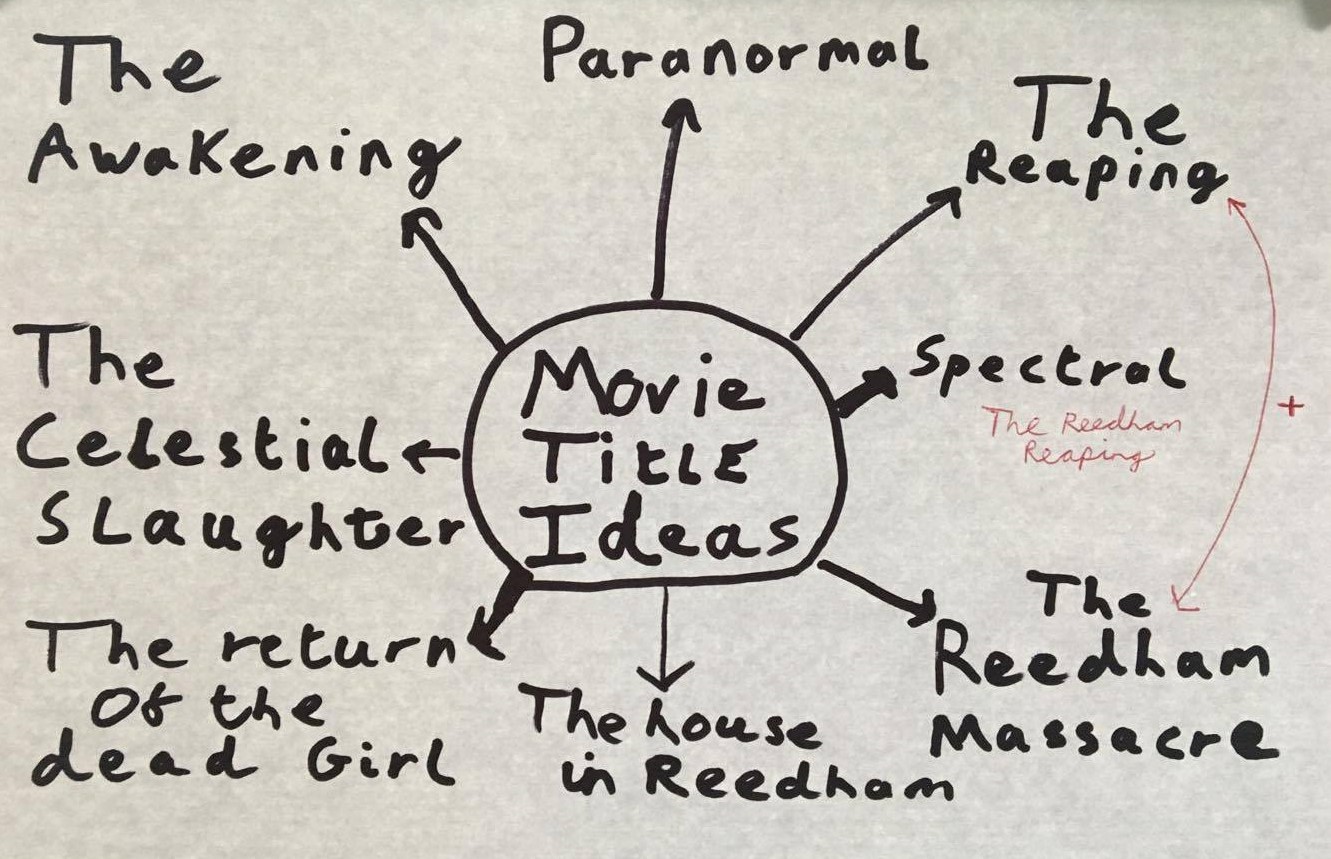 Movie
Title
Ideas
Paranormal
The
Reaping
Spectral
The Reedham
Reaping
+
The
Reedham
Massacre
The house
in Reedham
The return
Of the
dead Girl
The
Celestial
Slaughter
The
Awakening